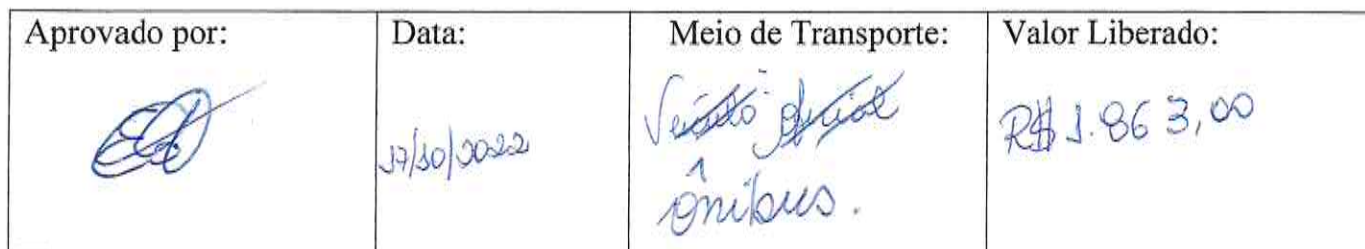 Aprovado por:
Data:
Meio de Transporte:
Valor Liberado:
17/10/2022
Veículo oficial
ônibus.
R$ 1.863,00